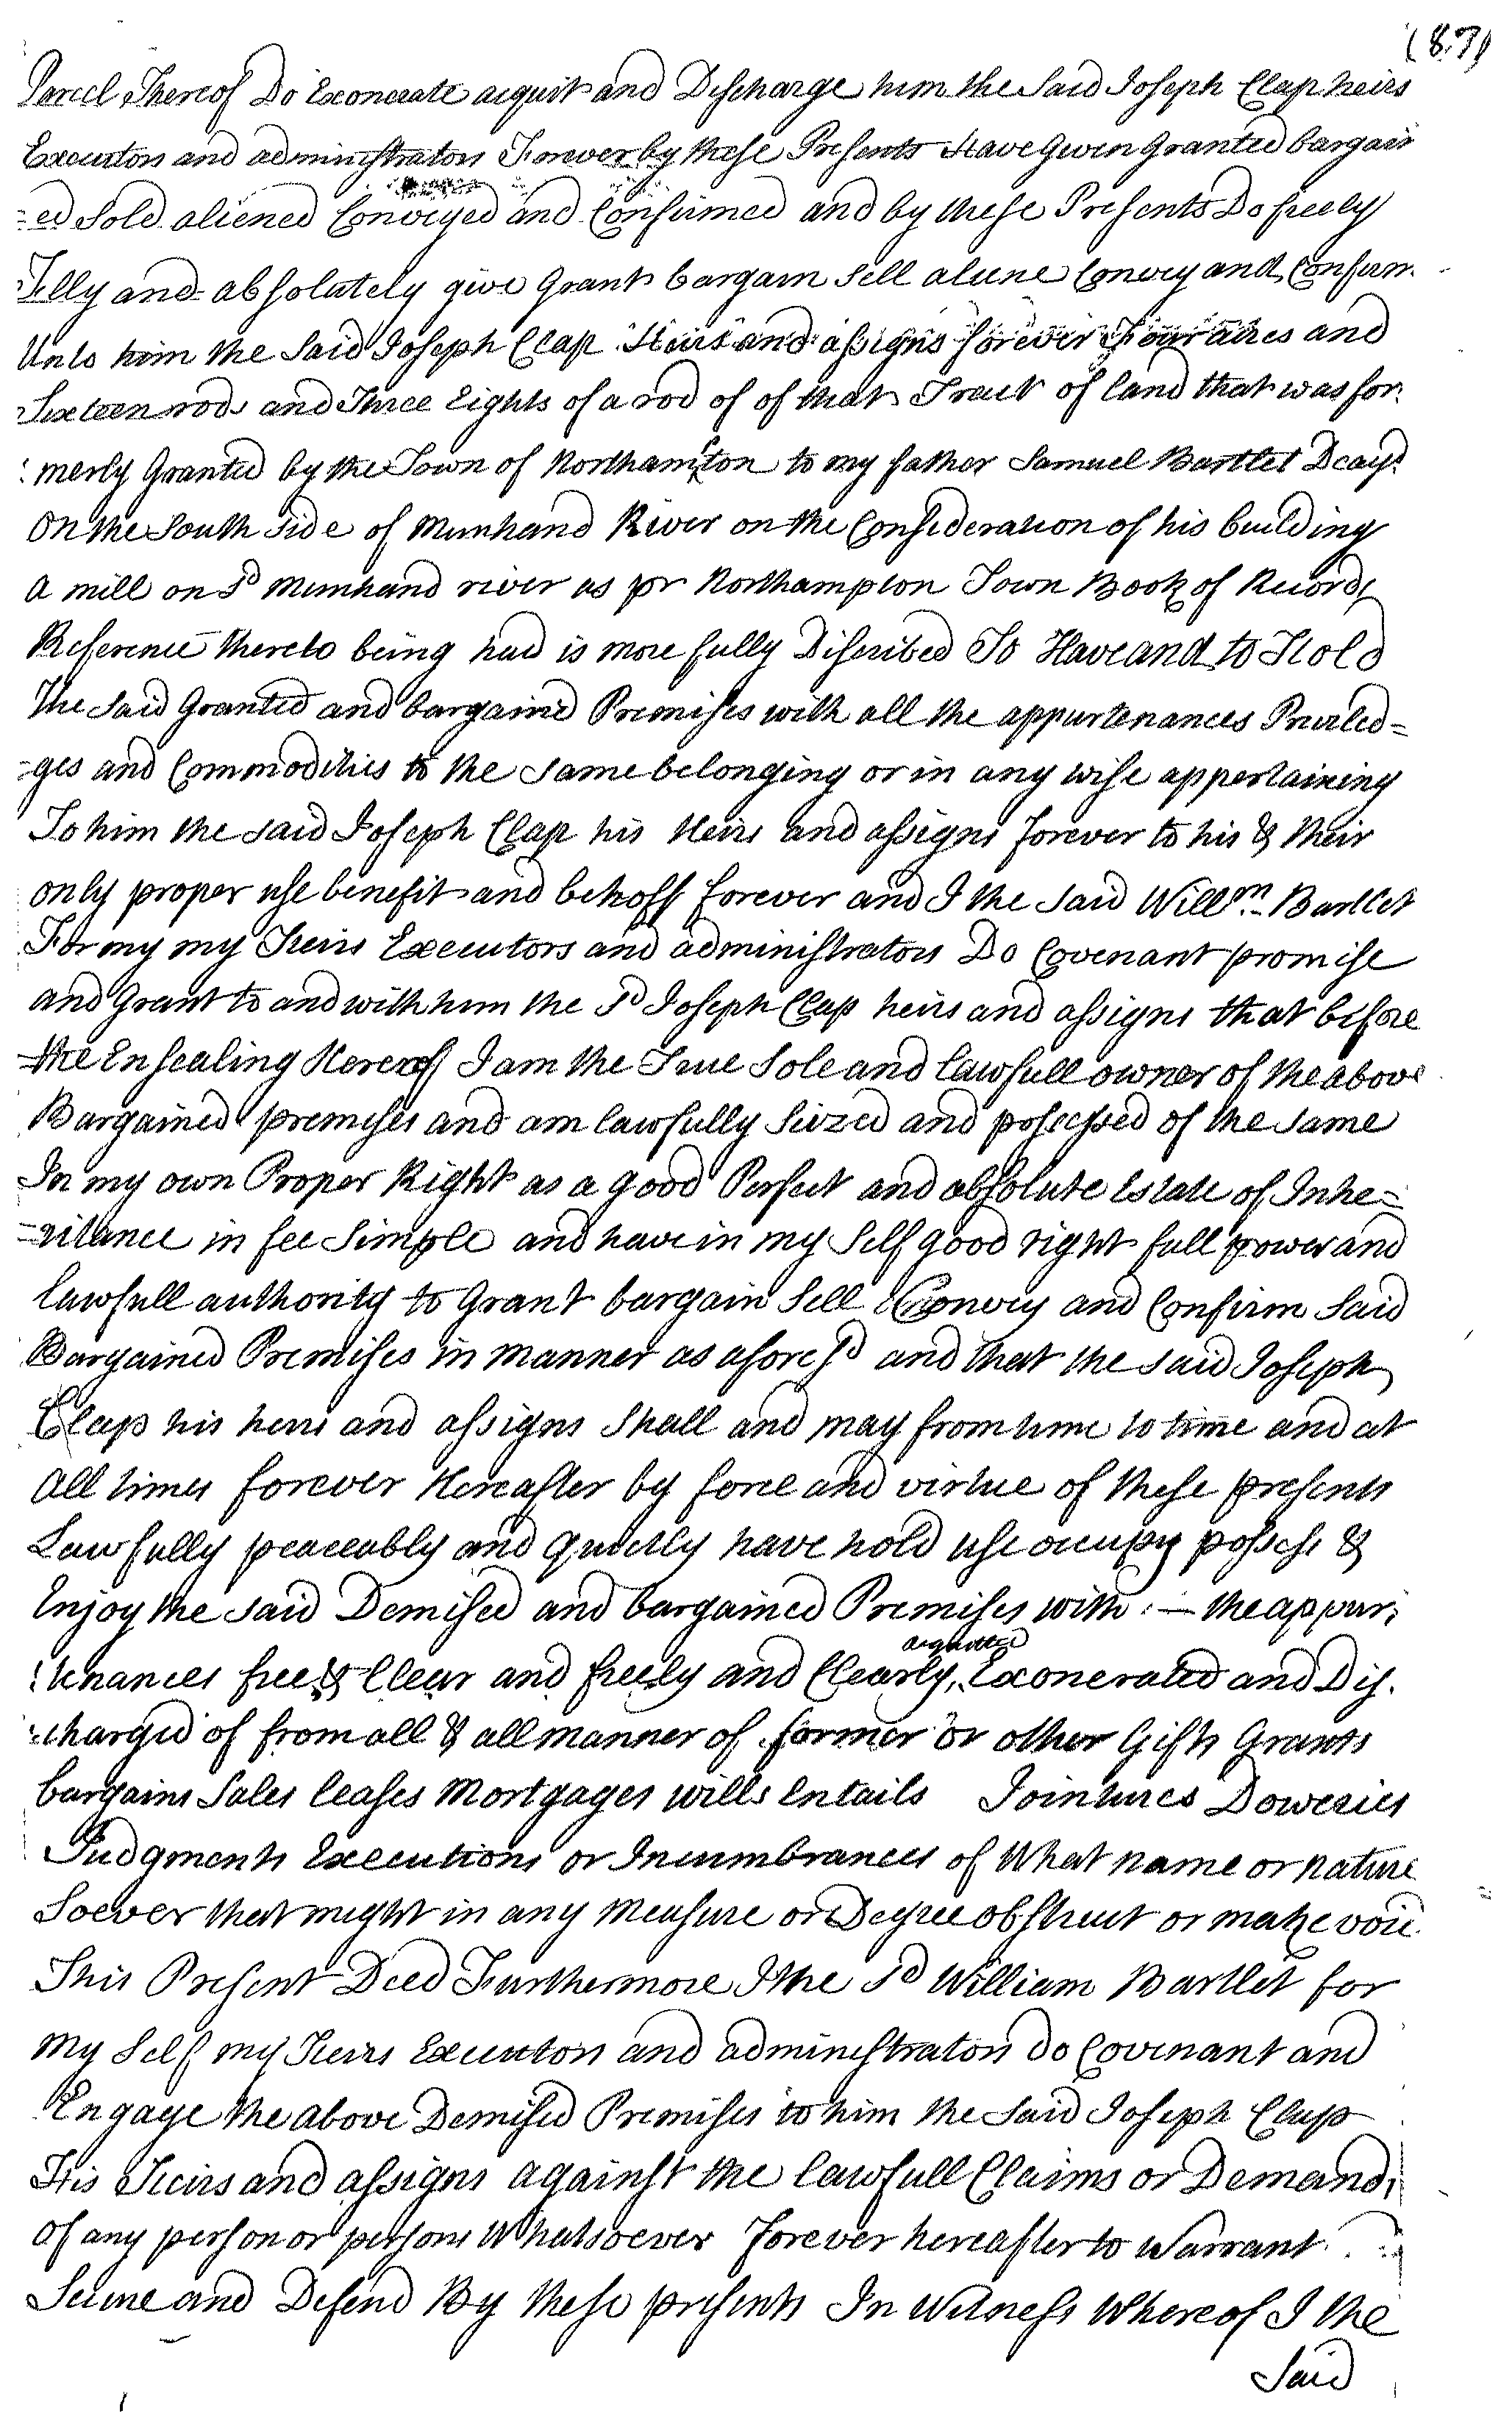 (87)
Parcel Thereof Do Exonerate acquit and Discharge him the Said Joseph Clap heirs
Executors and administrators Forever by these Presents Have Given Granted bargain
=ed Sold aliened Conveyed and Confirmed and by these Presents Do freely
Fully and absolutely give Grant bargain Sell aliene Convey and Confirm
Unto him the Said Joseph Clap Heirs and assigns forever Four acres and
Sixteen rods and Three Eights of a rod of of that Tract of land that was for:
:merly Granted by the Town of Northampton to my father Samuel Bartlet Dcasd
On the South Side of Munhand River on the Consideration of his building
a mill on Sd Munhand river as pr Northampton Town Book of Records
Reference thereto being had is more fully Discribed To Have and to Hold
The Said Granted and bargained Premises with all the appurtenances Priviled=
=ges and Commodities to the Same belonging or in any wise appertaining
To him the Said Joseph Clap his Heirs and assigns forever to his & their
only proper use benefit and behoff forever and I the Said Willm Bartlet
For my my Heirs Executors and administrators Do Covenant promise
and Grant to and with him the Sd Joseph Clap heirs and assigns that before
the Ensealing Hereof I am the True Sole and lawfull owner of the above
Bargained premises and am lawfully Seized and possessed of the Same
In my own Proper Right as a good Perfect and absolute Estate of Inhe=
=ritance in fee Simple and have in my Self good right full power and
lawfull authority to Grant bargain Sell Convey and Confirm Said
Bargained Premises in manner as aforesd and that the Said Joseph
Clap his heirs and assigns Shall and may from time to time and at
all times forever Hereafter by force and virtue of these presents
Lawfully peaceably and quietly have hold use occupy possess &
Enjoy the Said Demised and bargained Premises with :— the appur:
:tenances free & Clear and freely and Clearly, acquitted Exonerated and Dis.
:charged of from all & all manner of former or other Gifts Grants
bargains Sales leases Mortgages wills Entails Jointures Doweries
Judgments Executions or Incumbrances of What name or nature
Soever that might in any Measure or Degree obstruct or make void
This Present Deed Furthermore I the Sd William Bartlet for
my Self my Heirs Executors and administrators do Covenant and
Engage the above Demised Premises to him the Said Joseph Clap
His Heirs and assigns against the lawfull Claims or Demands
of any person or persons Whatsoever forever hereafter to Warrant
Secure and Defend By these presents In Witness Whereof I the
Said